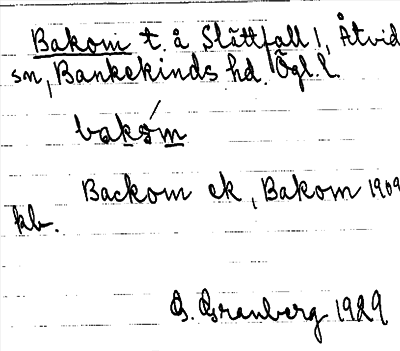 Bakom t. å Slättfall l, Åtvid
sn, Bankekinds hd. Ögl. l.
baksm
Backom ek, Bakom 1909
kb.
G. Granberg 1929